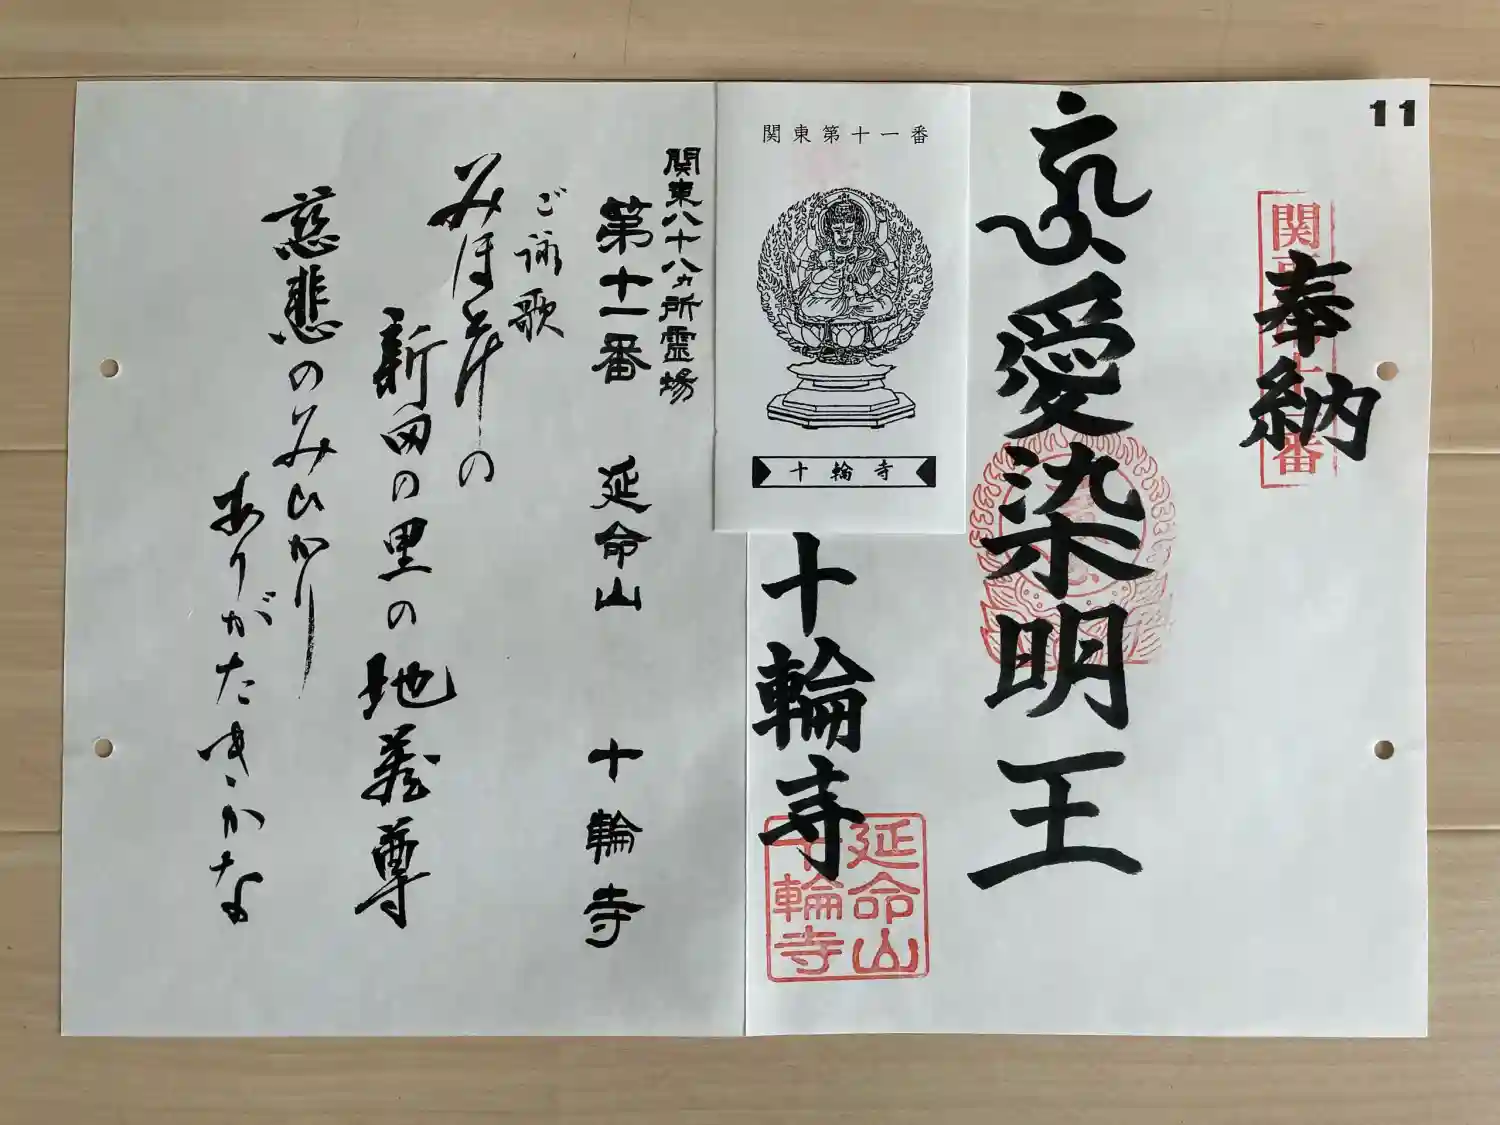 11
奉納
関東第十一番
愛染明王
十輪寺
延命山
十輪寺
関東第十一番
十輪寺
関東八十八ヵ所霊場
第十一番 延命山 十輪寺
ご詠歌
新田の里の地蔵尊
慈悲のみひかり
ありがたきかな